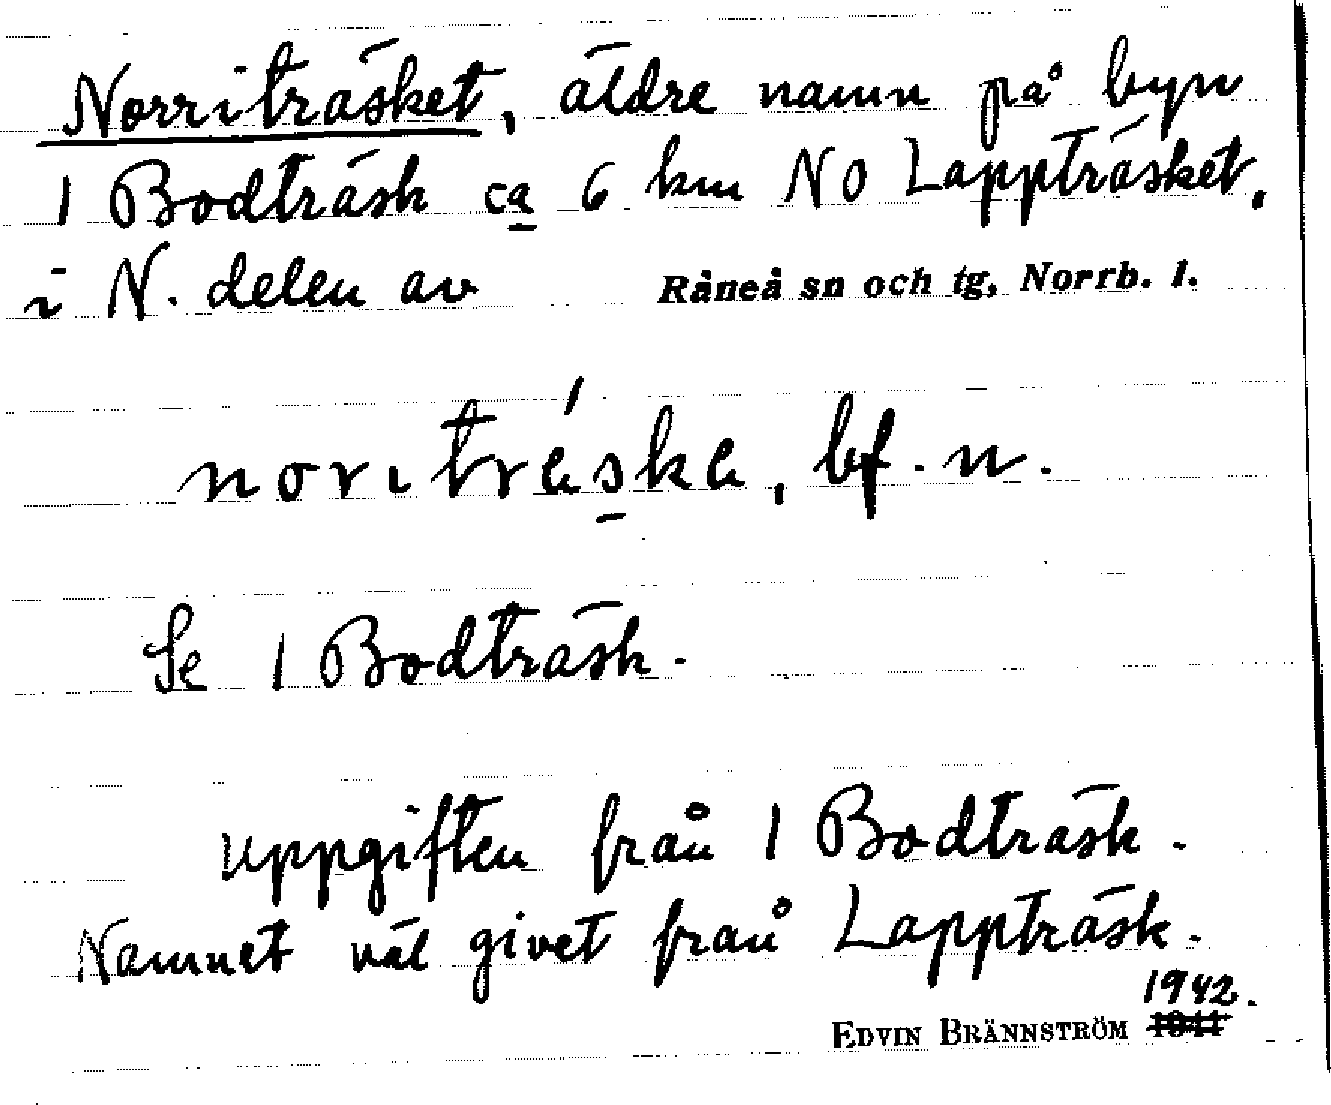 Norriträsket, äldre namn på byn
1 Bodträsk ca 6 km NO Lappträsket,
i N. delen av Råneå sn och tg, Norrb. l.
noritrǽska, bf. n.
Se 1 Bodträsk.
uppgiften från 1 Bodträsk.
Namnet väl givet från Lappträsk.
1942.
EDVIN BRÄNNSTRÖM 1941